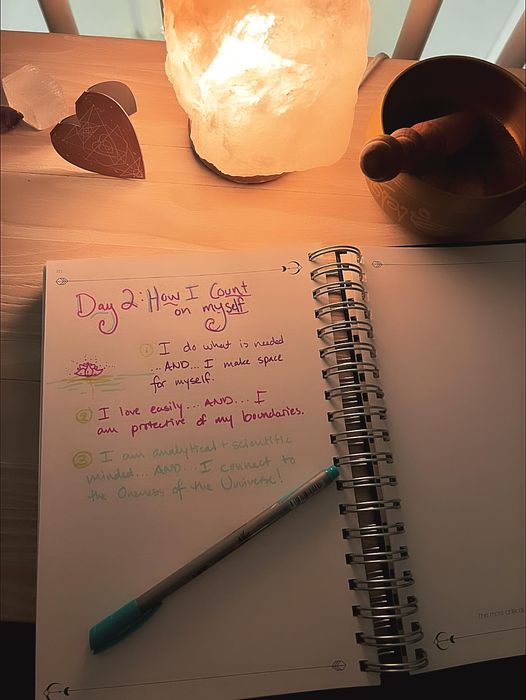 Day 2: How I Count
on myself
① I do what is needed
...AND... I make space
for myself.
② I love easily... AND.... I
am protective of my boundaries.
③ I am analytical + scientific
minded... AND... I connect to
the Oneness of the Universe!
The more critical